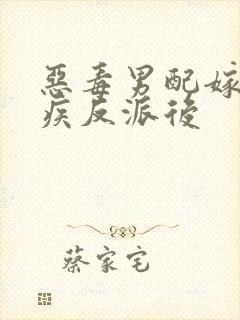 惡毒男配嫁
疾反派後
蔡家宅